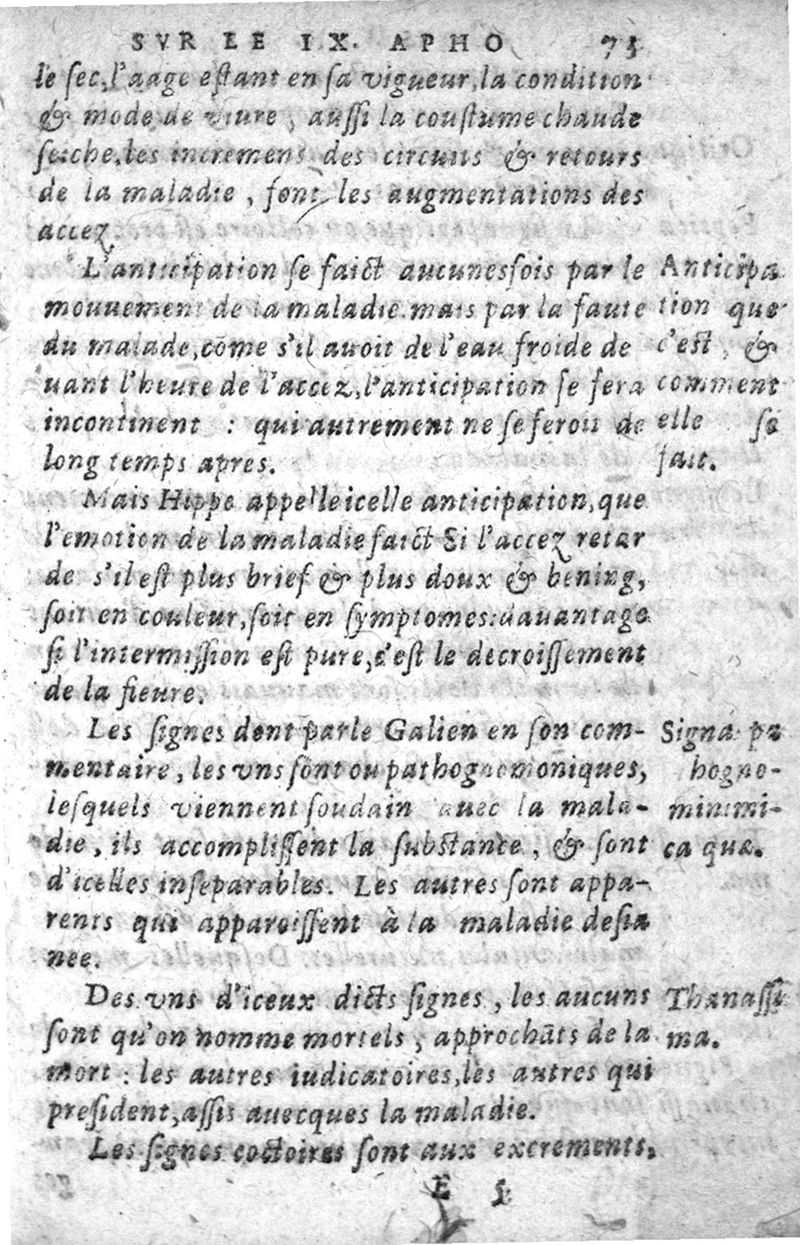 SVR LE IX. APHO 75
le sec, l'aage estant en sa vigueur, la condition
& mode de viure, aussi la coustume chaude
seiche, les incremens des circuits & retours
de la maladie, sont les augmentations des
accez
L'anticipation se faict aucunesfois par le
mouuement de la maladie. mais par la faute
du malade, cõme s'il auoit de l'eau froide de
uant l'heure de l'accez, l'anticipation se fera
incontinent : qui autrement ne se feroit de
long temps apres.
Anticipa
tion que
c'est, &
comment
elle se
fait.
Mais Hippo appelle icelle anticipation, que
l'emotion de la maladie faict Si l'accez retar
de s'il est plus brief & plus doux & bening,
soit en couleur, soit en symptomes: dauantage
si l'intermission est pure, c'est le decroissement
de la fieure.
Les signes dont parle Galien en son com-
mentaire, les vns sont ou pathognomoniques,
lesquels viennent soudain auec la mala-
die, ils accomplissent la substance, & sont
d'icelles inseparables. Les autres sont appa-
rents qui apparoissent à la maladie desia
nee.
Signa pa
hogno-
minimi-
ca quæ.
Des vns d'iceux dicts signes, les aucuns
sont qu'on nomme mortels, approchãts de la
mort : les autres iudicatoires, les autres qui
president, assis auecques la maladie.
Thanassi
ma.
Les signes coctoires sont aux excrements,
E